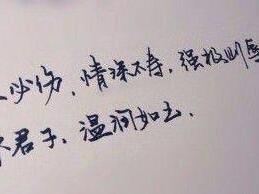 必伤，情深不寿，强极则辱
君子，温润如玉．